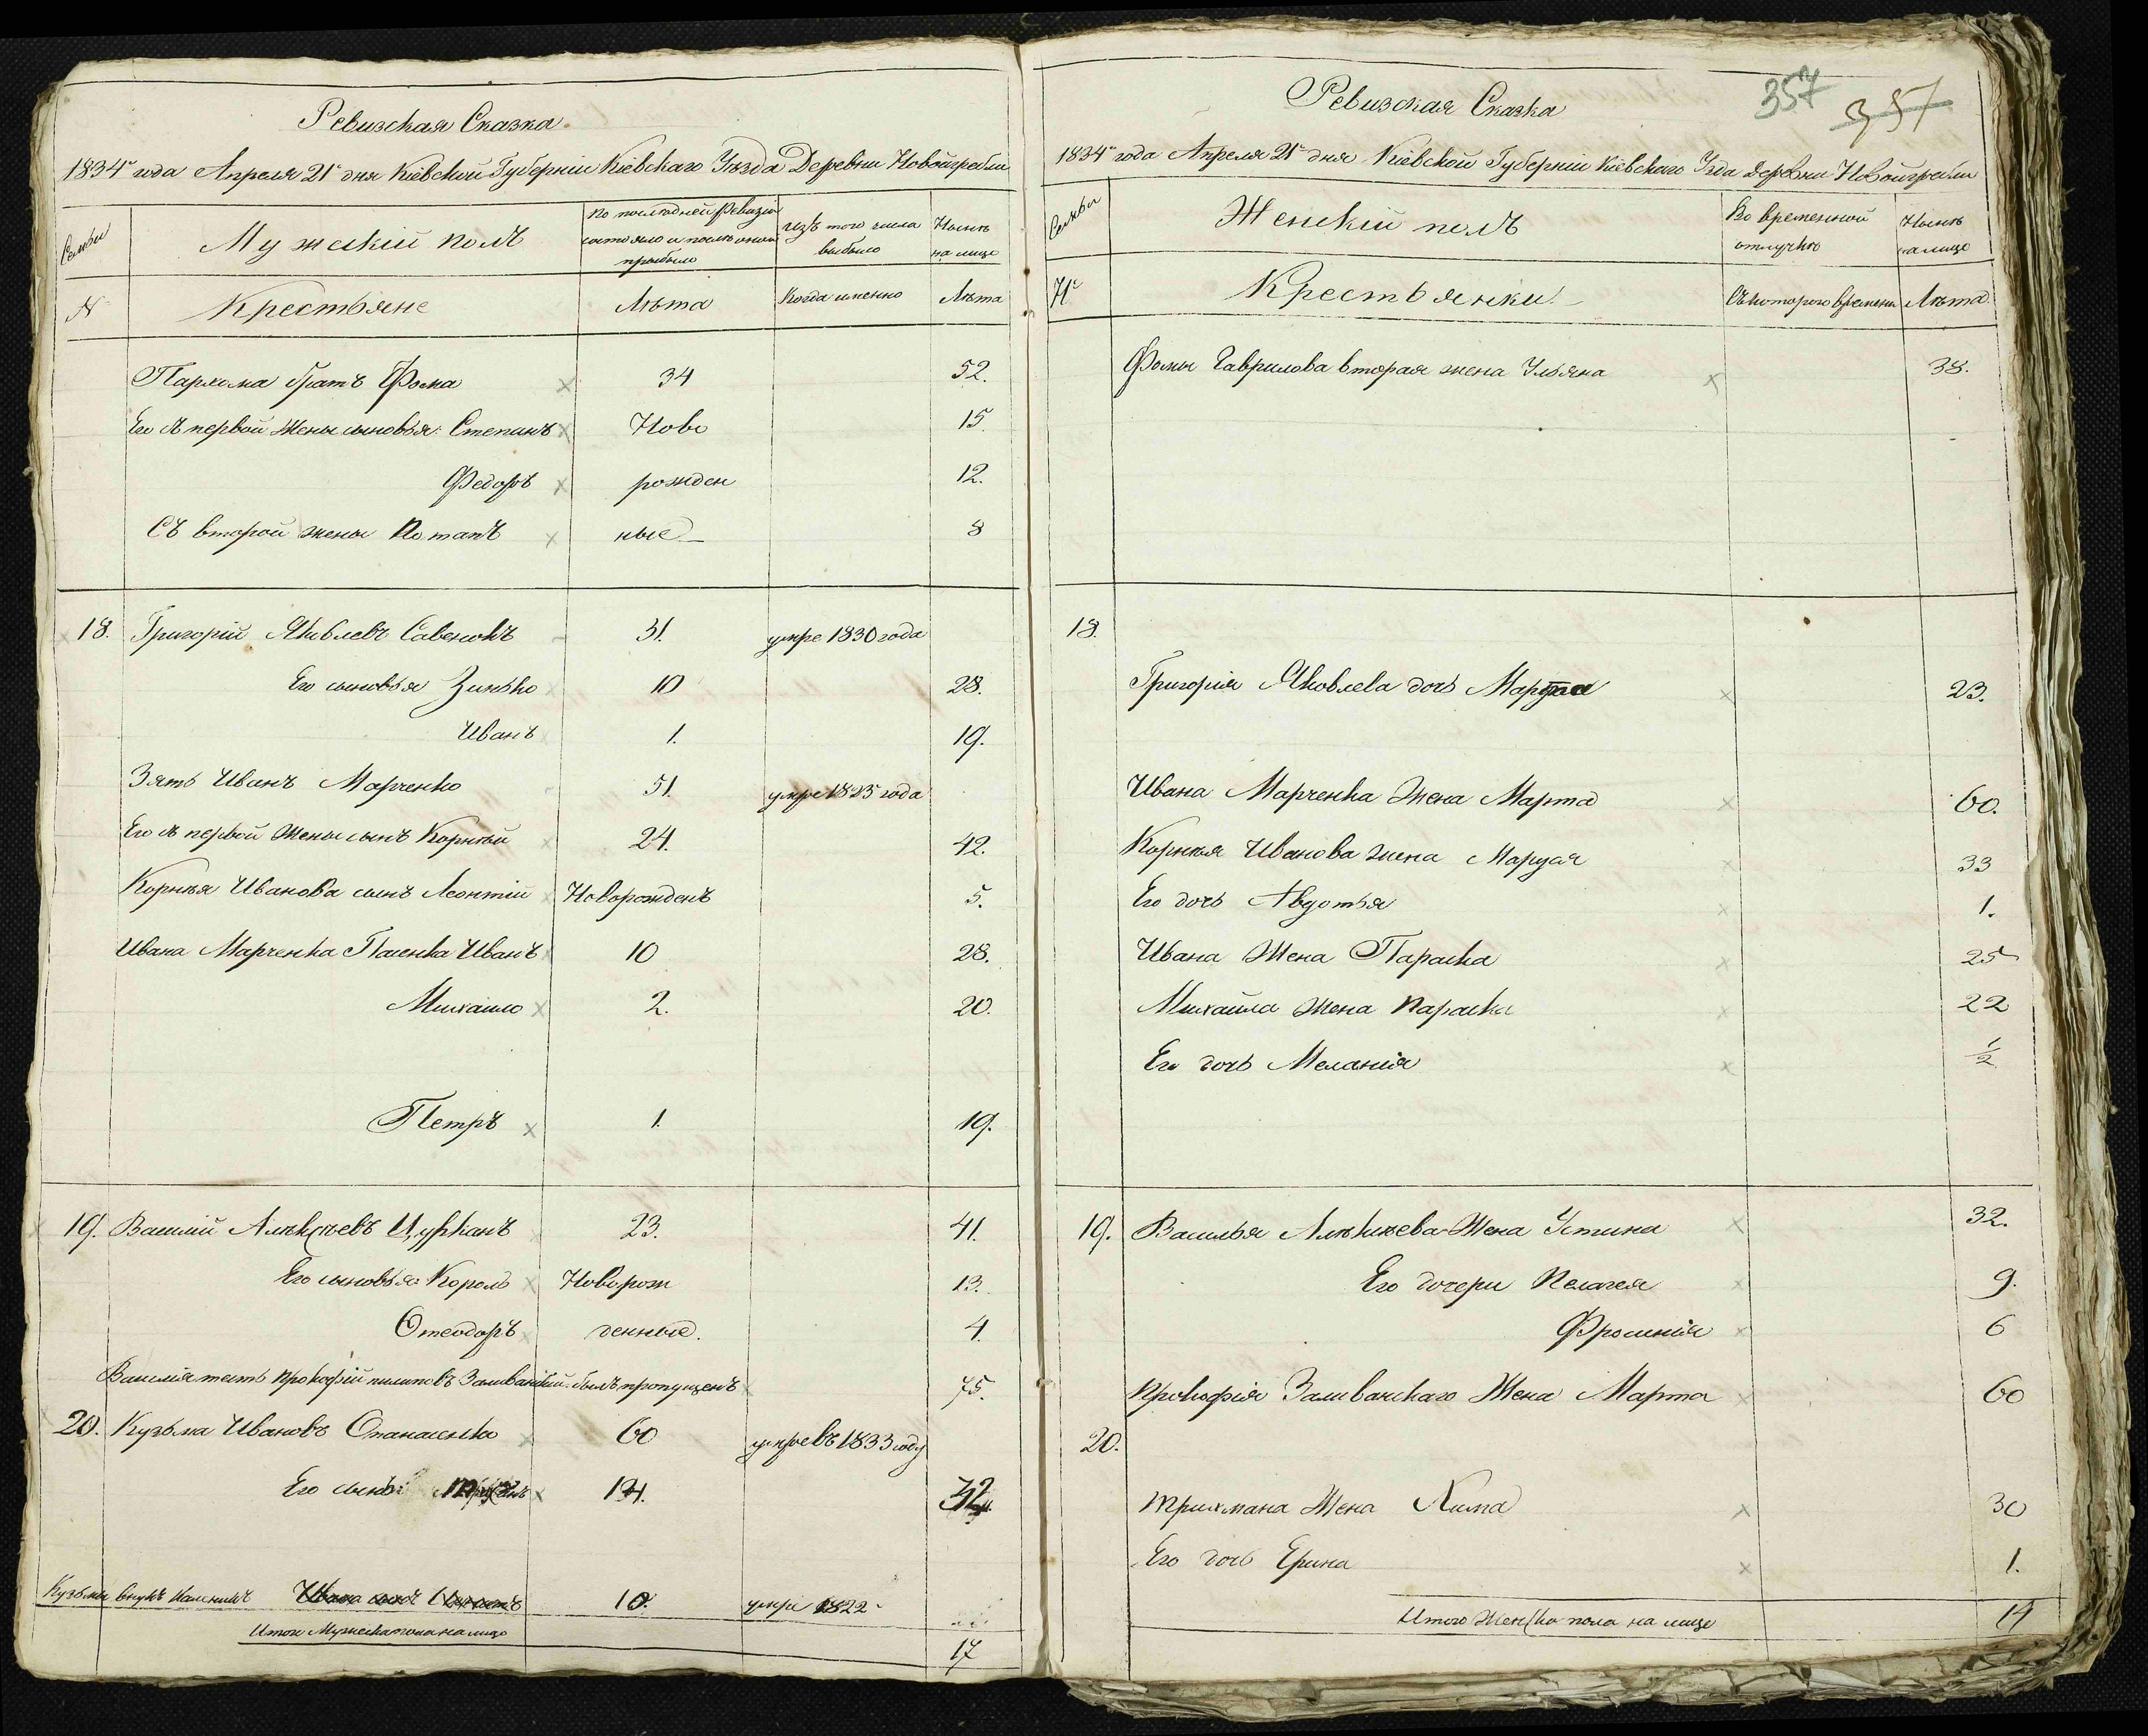 Ревизская Сказка
1834го года Апреля 21го дня Кіевской Губерніи Кіевскаго Уѣзда Деревни Новойгребли
Семьи
Мужескій полъ
По последней Ревизіи состояло и послѣ оной прибыло
изъ того числа выбыло
Нынѣ на лицо
N
Крестьяне
Лѣта
Когда именно
Лѣта
Пархома братъ Фома 34 52.
Его съ первой жены сыновья: Степанъ Ново 15.
Федоръ рожден 12.
Съ второй жены Потапъ ные 8
18. Григорій Яковлевъ Савенокъ 31. умре 1830 года
Его сыновья Зинько 10 28.
Иванъ 1. 19.
Зять Иванъ Марченко 51. умре 1825 года
Его съ первой жены сынъ Корнѣй 24. 42.
Корнѣя Иванова сынъ Леонтій Новорожденъ 5.
Ивана Марченка Пасенка Иванъ 10 28.
Михайло 2. 20.
Петръ 1. 19.
19. Василій Алексѣевъ Цурканъ 23. 41.
Его сыновья Король Новорож 13.
Отеодоръ денные. 4.
Василія тесть Прокофій пилиповъ Заливанскій былъ пропущенъ 75.
20. Кузьма Ивановъ Опанасенко 60 умре въ 1833 году
Его сынъ: 32
Кузьмы внукъ 10. умре 1822
Итого Мужеска пола на лицо
17
357
357
Ревизская Сказка
1834го года Апреля 21го дня Кіевской Губерніи Кіевскаго Уѣзда Деревни Новойгребли
Семьи
Женскій полъ
Во временной отлучкѣ
Нынѣ на лицо
Крестьянки
Съ котораго времени
Лѣта
Фомы Гаврилова вторая жена Ульяна 38.
18.
Григорія Яковлева дочь 23.
Ивана Марченка Жена Марта 60.
Корнѣя Иванова жена Маруся 33
Его дочь Авдотья 1.
Ивана Жена Параска 25
Михайла жена Параска 22
Его дочь Меланія 1/2
19. Василья Алексѣева Жена Устина 32.
Его дочери Пелагея 9.
Фросинія 6
Прокофія Заливанскаго Жена Марта 60
20.
Жена Хима 30
Его дочь Ерина 1.
Итого Женска пола на лицо 14